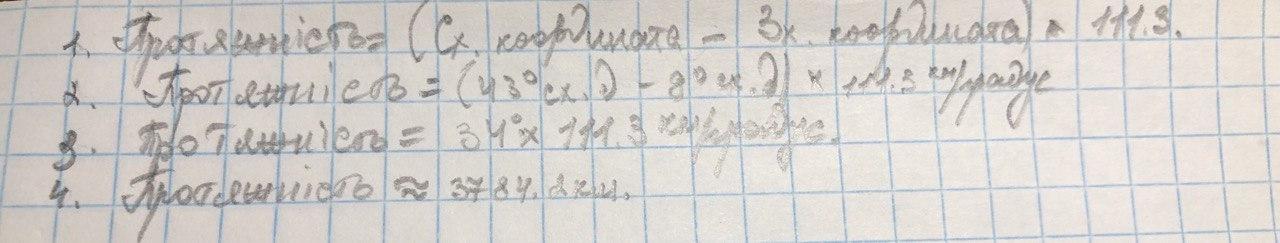 1. Протяжність = (Сх. координата - Зх. координата) × 111.3.
2. Протяжність = (43° сх. д - 8° сх. д) × 111.3 км/градус
3. Протяжність = 34° × 111.3 км/градус.
4. Протяжність ≈ 3784.2 км.